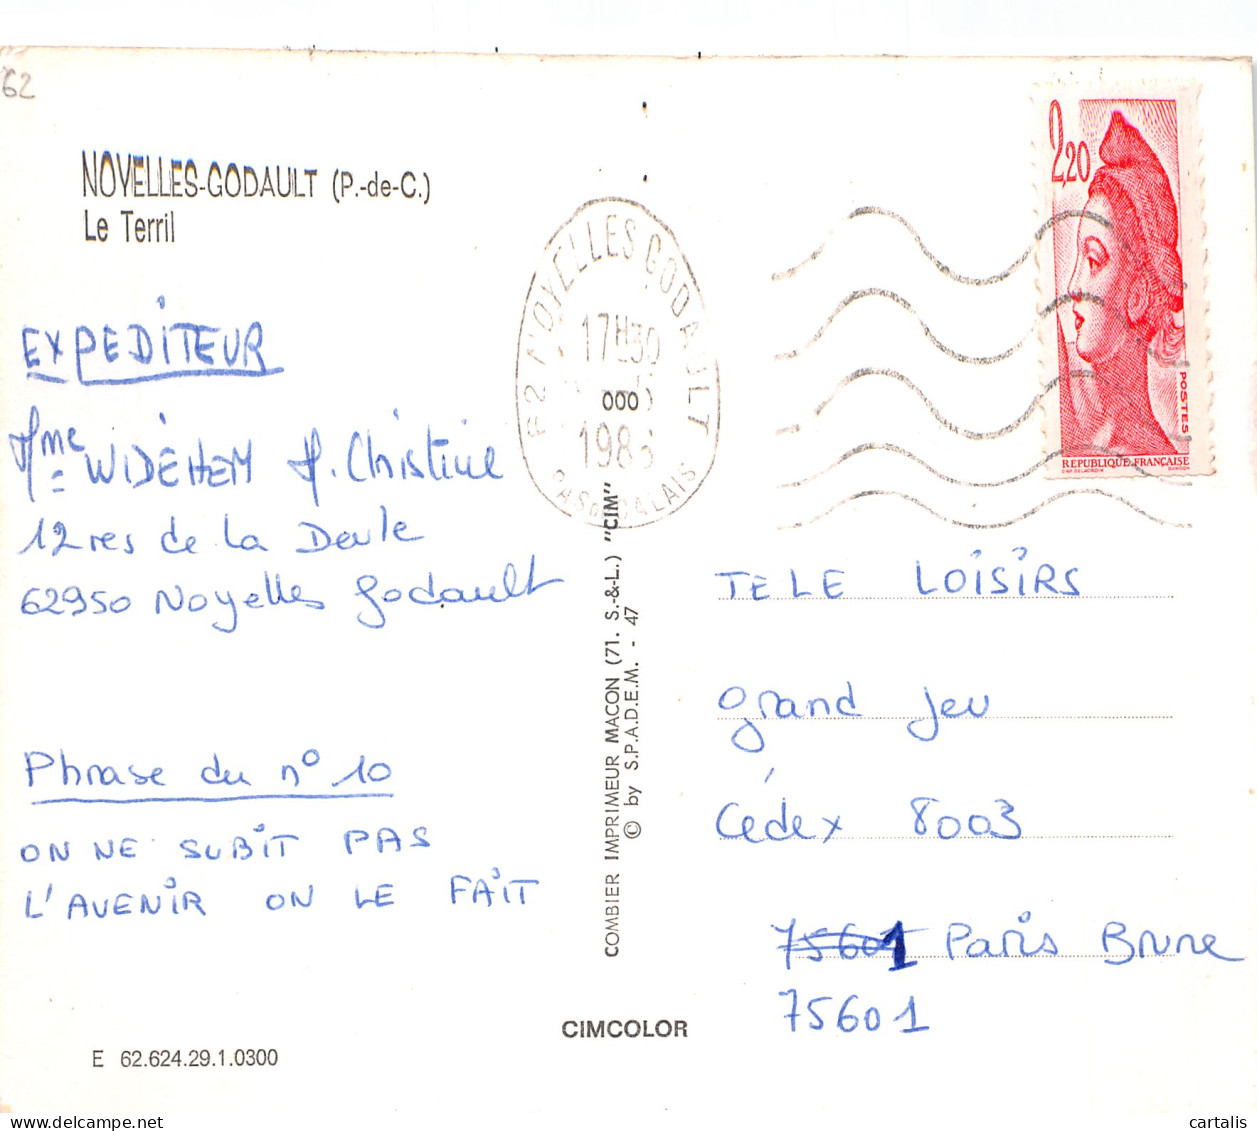 62
NOYELLES-GODAULT (P.-de-C.)
Le Terril
2,20
POSTES
REPUBLIQUE FRANÇAISE
62 NOYELLES GODAULT
17H30
000
PAS DE CALAIS
EXPEDITEUR
Mme WIDEHEM M. Christine
12 res de la Deule
62950 Noyelles Godault
Phrase du n° 10
ON NE SUBIT PAS
L'AVENIR ON LE FAIT
COMBIER IMPRIMEUR MACON (71. S.-&-L.) "CIM"
© by S.P.A.D.E.M. - 47
TELE LOISIRS
grand jeu
Cédex 8003
75601 Paris Brune
75601
CIMCOLOR
E 62.624.29.1.0300
cartalis